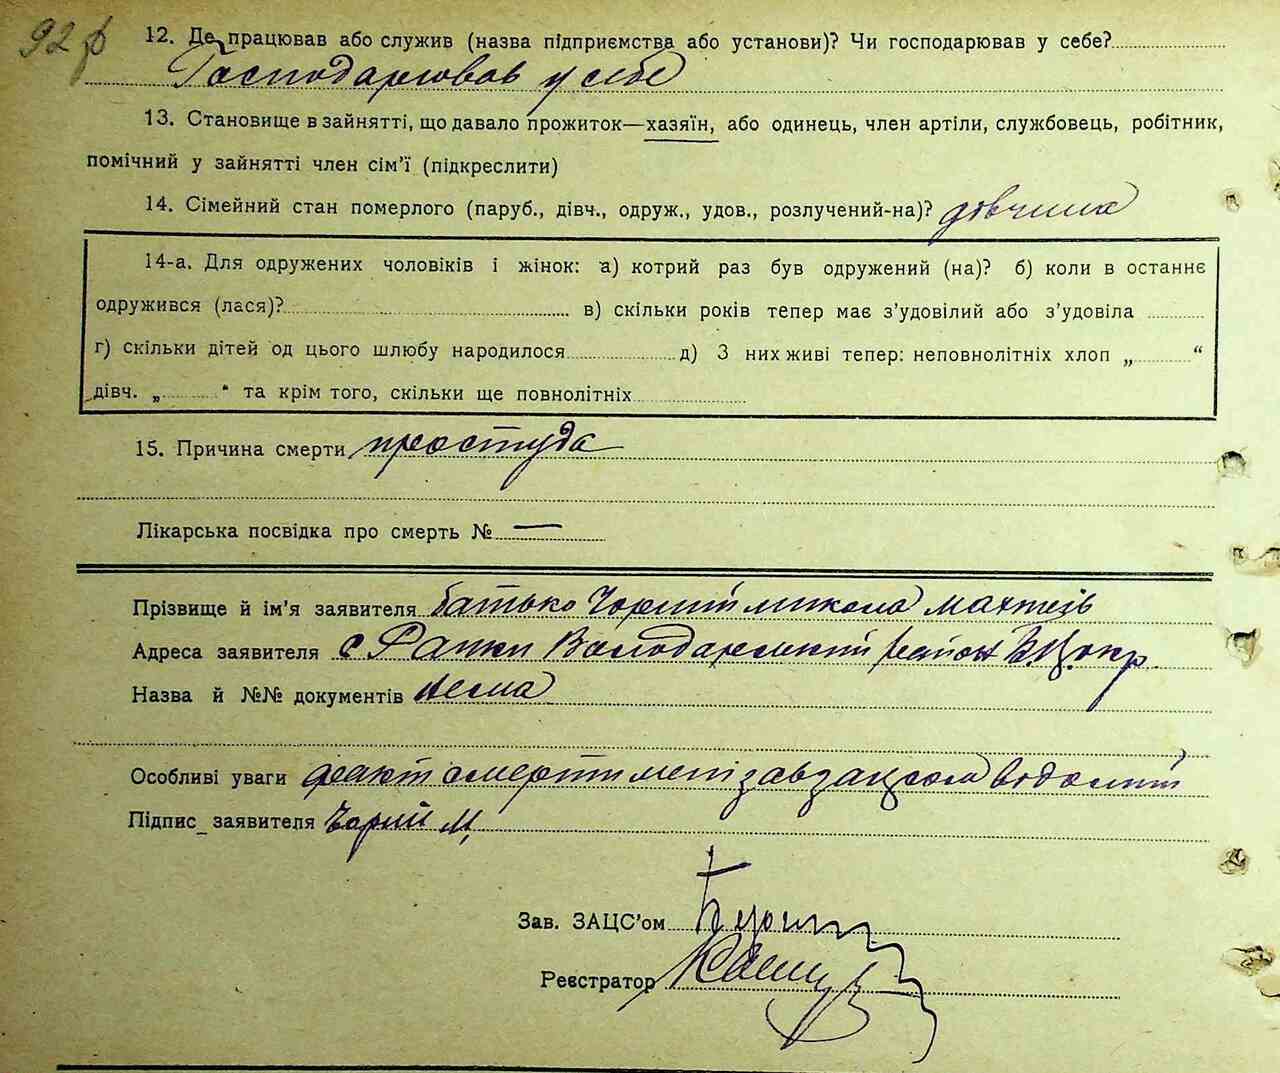 92
12. Де працював або служив (назва підприємства або установи)? Чи господарював у себе?
Господарював у себе
13. Становище в зайнятті, що давало прожиток—хазяїн, або одинець, член артіли, службовець, робітник,
помічний у зайнятті член сім'ї (підкреслити)
14. Сімейний стан померлого (паруб., дівч., одруж., удов., розлучений-на)? дівчина
14-а. Для одружених чоловіків і жінок: а) котрий раз був одружений (на)? б) коли в останнє
одружився (лася)? в) скільки років тепер має з'удовілий або з'удовіла
г) скільки дітей од цього шлюбу народилося д) З них живі тепер: неповнолітніх хлоп „ “
дівч. „ “ та крім того, скільки ще повнолітніх
15. Причина смерти простуда
Лікарська посвідка про смерть № —
Прізвище й ім'я заявителя батько Чорний микола
Адреса заявителя с Ратки Володарський район Б.Ц. окр.
Назва й №№ документів нема
Особливі уваги факт смерти мені завзацсом відомий
Підпис заявителя Чорний М.
Зав. ЗАЦС'ом
Реєстратор